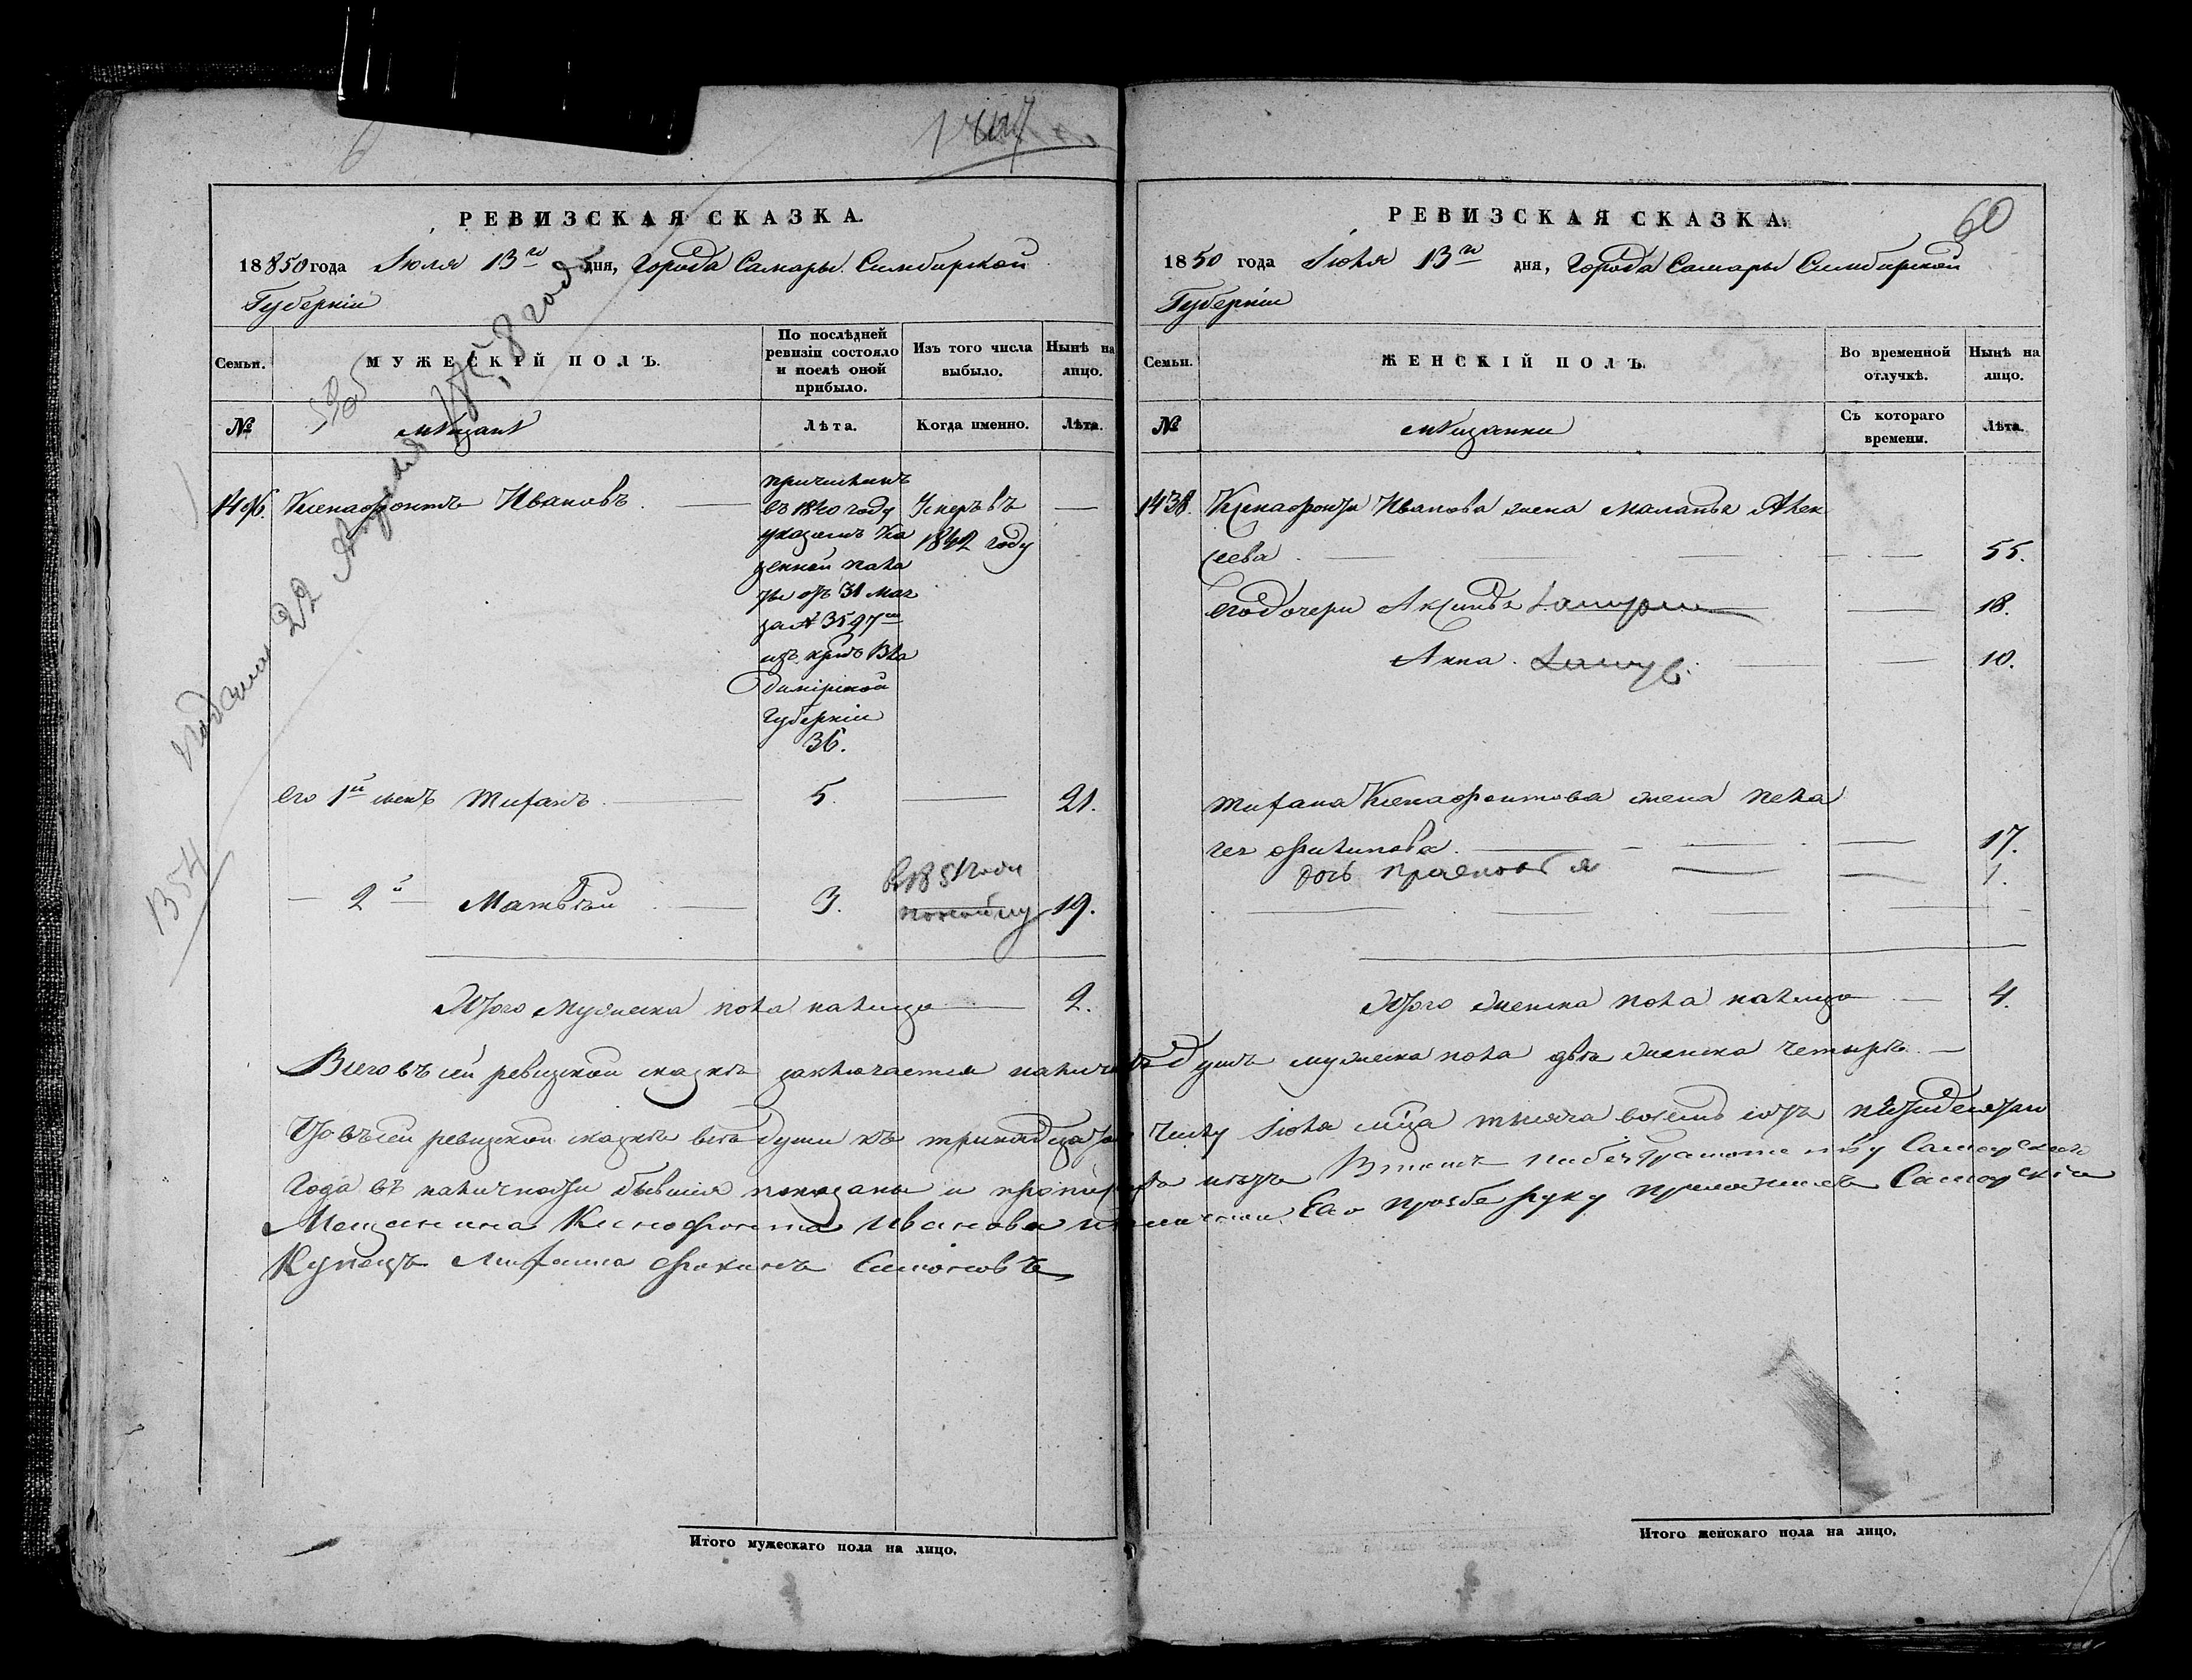 РЕВИЗСКАЯ СКАЗКА.
18850 года Июля 13го дня, Города Самары Симбирской
Губернiи
Семьи.
МУЖЕСКIЙ ПОЛЪ.
По послѣдней ревизiи состояло и послѣ оной прибыло.
Изъ того числа выбыло.
Нынѣ на лицо.
№
мѣщанѣ
Лѣта.
Когда именно.
Лѣта.
Ксенафонтъ Ивановъ.
причисленъ
въ 1840 году
указомъ Ка
зенной пала
ты отъ 31 мая
за № 3597мъ
изъ Вла
димiрской
Губернiи
36.
Умеръ въ
году
его 1й сынъ Тифанъ
5.
21.
2й Матвѣй
3.
19.
в 1851 годи
Итого мужеска пола налицо
2.
1354
РЕВИЗСКАЯ СКАЗКА.
60
1850 года Iюля 13го дня, Города Самары Симбирской
Губернiи
Семьи.
ЖЕНСКIЙ ПОЛЪ.
Во временной отлучкѣ.
Нынѣ на лицо.
№
мѣщанки
Съ котораго времени.
Лѣта.
1438. Ксенафонта Иванова жена Маланья Алек
сеева
55.
его дочери Аксинья
18.
Анна.
10.
Тифана Ксенафонтова жена Пела
гея Филипова
17.
дочь Прасковья
1.
Итого женска пола налицо
4.
Всего въ сей ревизской сказкѣ заключается налично душъ мужеска пола двѣ женска четыре.
Что въ сей ревизской сказкѣ всѣ души къ тринадцатому числу Iюля мца тысяча восемь сотъ пятидесятаго
Года въ наличности бывшiя показаны и пропи нѣтъ В томъ Самарского
Мещанина Кинофонта Иванова Его прозбе руку приложилъ Самарскiй
Купецъ
Итого мужескаго пола на лицо.
Итого женскаго пола на лицо.